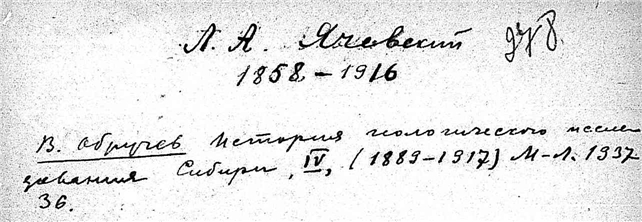 Л. А. Ячевский дуб.
1858 – 1916
В. Обручев История геологического иссле
дования Сибири, IV, (1889–1917) М-Л. 1937
36.